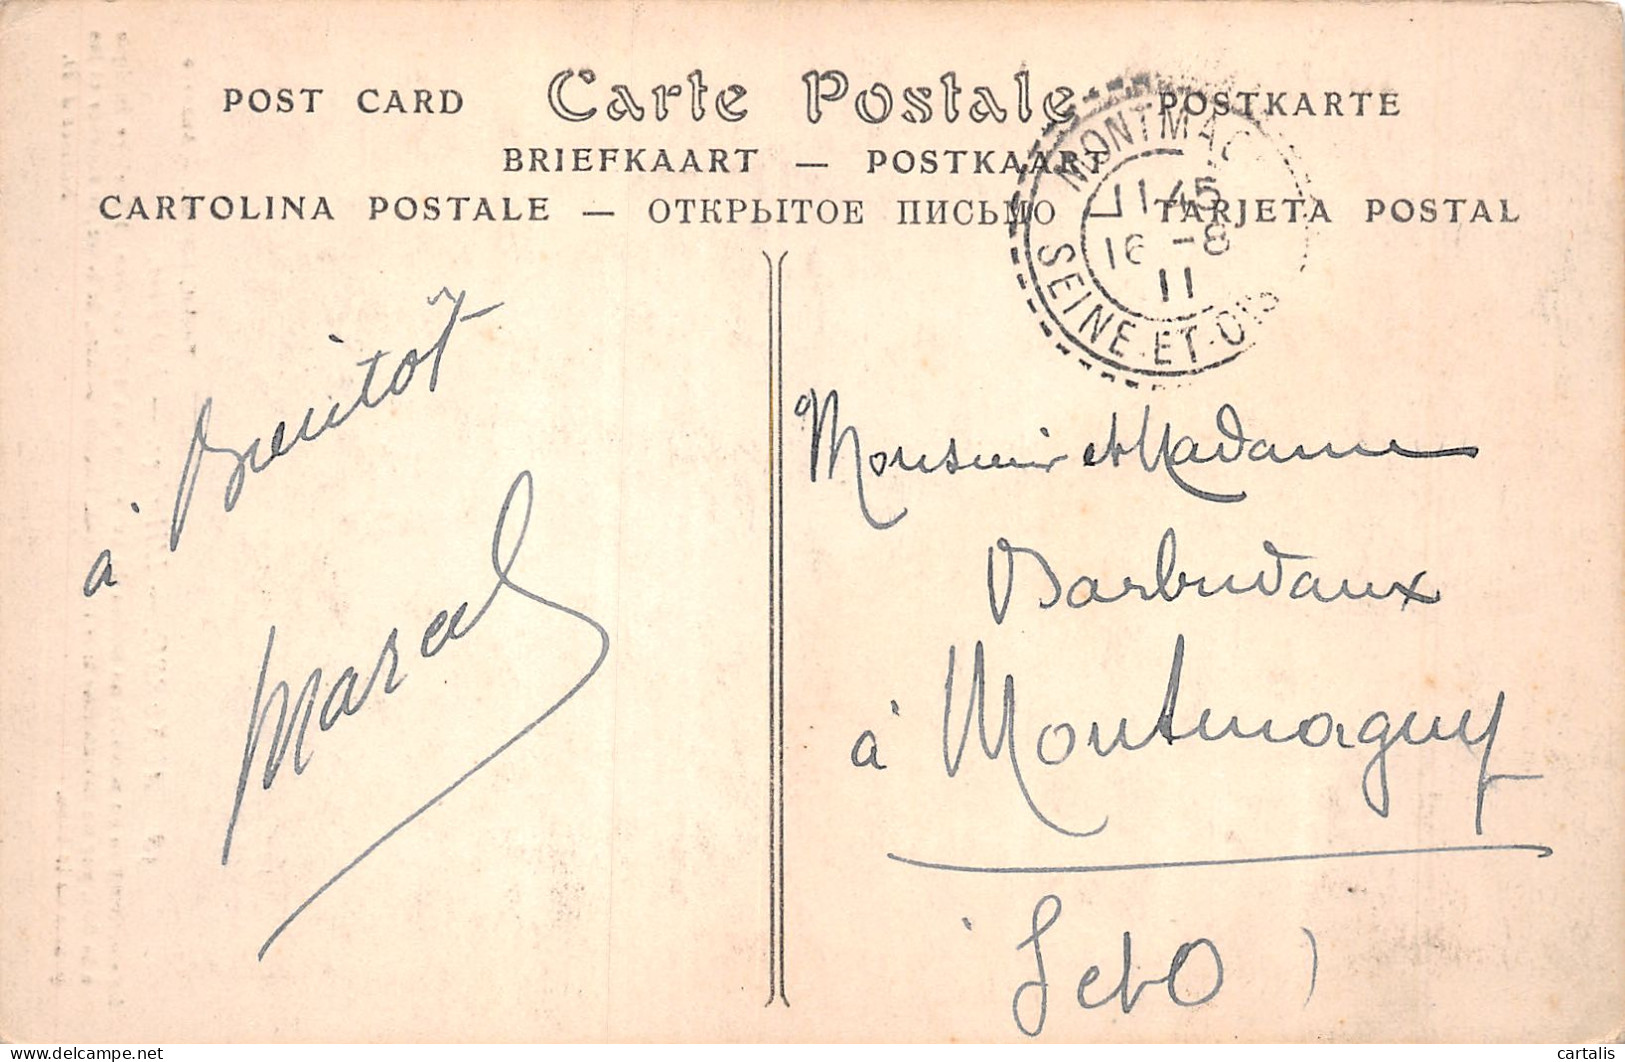 POST CARD Carte Postale POSTKARTE
BRIEFKAART — POSTKAART
CARTOLINA POSTALE — ОТКРЫТОЕ ПИСЬМО — TARJETA POSTAL
MONTMAG
11 45
16 -8
11
SEINE-ET-OISE
à Bientôt
Marcel
Monsieur et Madame
Barbudaux
à Montmagny
(S et O)
delcampe.net
cartalis